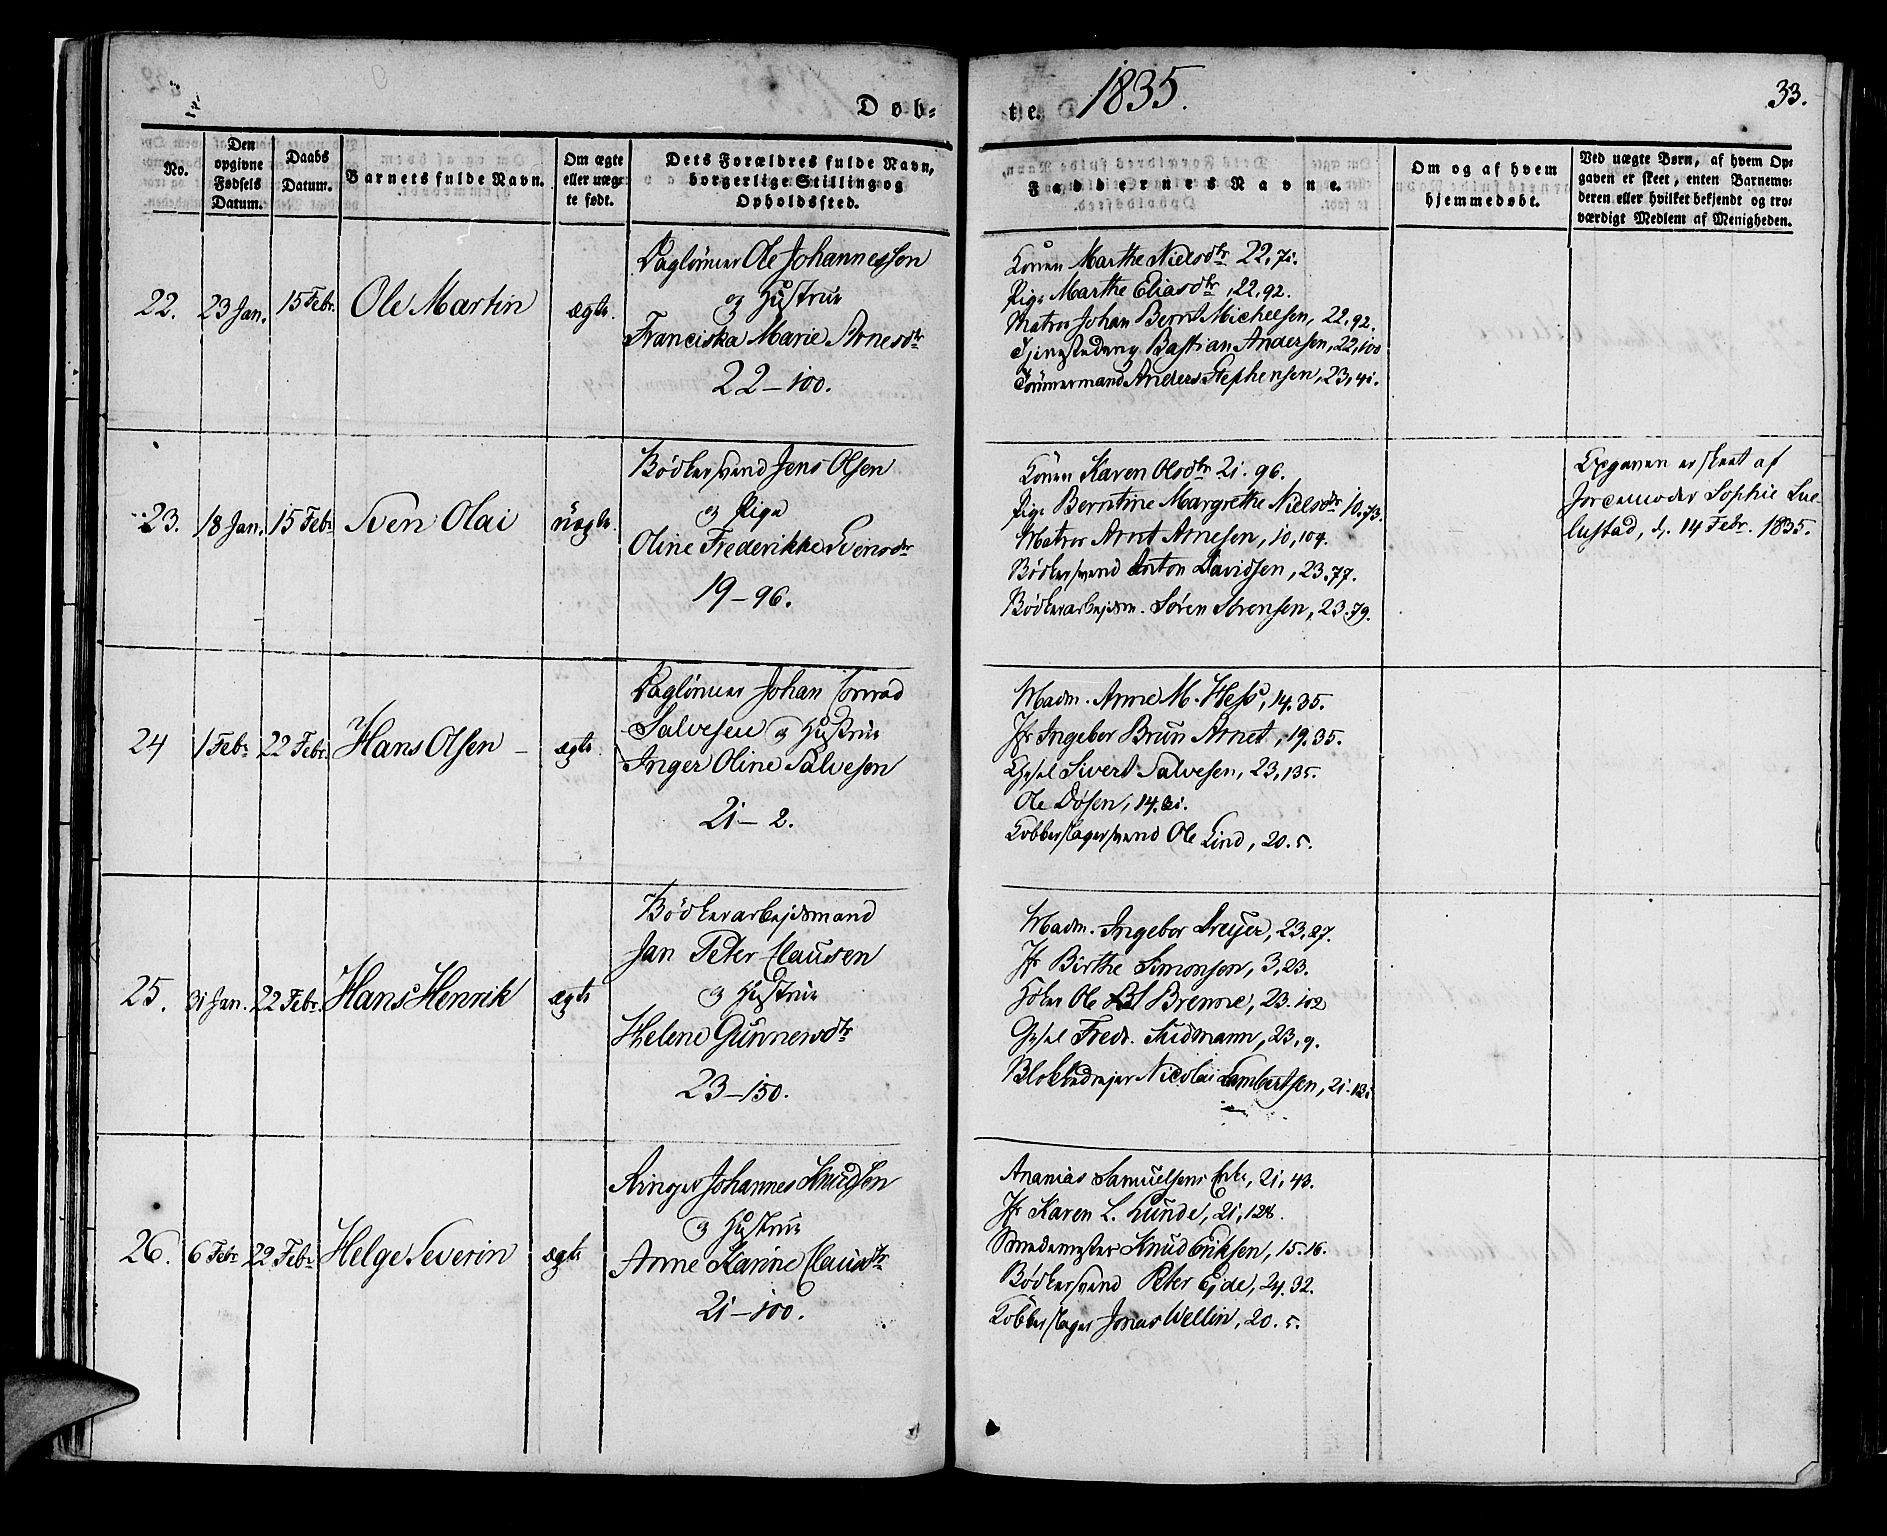 Døb-
te. 1835.
33.
No.
Den opgivne Fødsels Datum.
Daabs Datum.
Barnets fulde Navn.
Om ægte eller uæg- te født.
Dets Forældres fulde Navn, borgerlige Stilling og Opholdssted.
Faddernes Navne.
Om og af hvem hjemmedøbt.
Ved uægte Børn, af hvem Op- gaven er skeet, enten Barnemo- deren eller hvilket bekjendt og tro- værdigt Medlem af Menigheden.
22. 23 Jan. 15 Febr. Ole Martin ægte.
Dagløner Ole Johannesson
og Hustrue
Franciska Marie Arnesdtr
22-100.
Konen Marthe Nielsdtr 22,71.
Pige Marthe Eliasdtr, 22,92.
Matros Johan Bernt Micheesen, 22,92.
Tjenestedreng Bastian Andersen, 22,100
Tømmermand Anders Stephensen, 23,41.
23. 18 Jan. 15 Febr Sven Olai uægte.
Bødkersvend Jens Olsen
og Pige
Oline Frederikke Svensdtr
19-96.
Konen Karen Olsdtr 21. 96.
Pige Berntine Margrethe Nielsdtr 10,73.
Matros Arnt Arnesen, 10,104.
Bødkersvend Anton Davidsen, 23.77.
Bødkerarbejdsm. Søren Sørensen, 23.79.
Opgaven er skeet af
Jordemoder Sophie Lul-
lustad, d. 14 Febr. 1835.
24 1 Febr 22 Febr. Hans Olsen ægte.
Dagløner Johan Conrad
Salvesen og Hustrue
Inger Oline Salveson
21-2.
Madm. Anne M. Hess, 14.35.
Jfr Ingebor Brun Arnet, 19.35.
Gesel Sivert Salvesen, 23,135.
Ole Døsen, 14.
Kobberslagersvend Ole Lind, 20.5.
25. 31 Jan. 22 Febr. Hans Henrik ægte
Bødkerarbejdsmand
Jan Peter Clausen
og Hustrue
Helene Gunnersdtr
23-150.
Madm. Ingebor Dreyer, 23,27.
Jfr Birthe Simonsen, 3,23.
Høker Ole Brenne, 23.102
Gesel Fredr. Suidmann, 23,9.
Blokkedrejer Nicolai Lambertsen, 21.
26. 6 Febr 22 Febr Helge Severin ægte
Ringer Johannes Knudsen
og Hustrue
Anne Karine Clausdtr
21-100.
Ananias Samuelsens Enke, 21,43.
Jfr Karen L. Lunde, 21,128.
Smedemester Knud Eriksen, 15.16.
Bødkersvend Peter Eide, 24.32.
Kobberslager Jonas Wellin, 20.5.